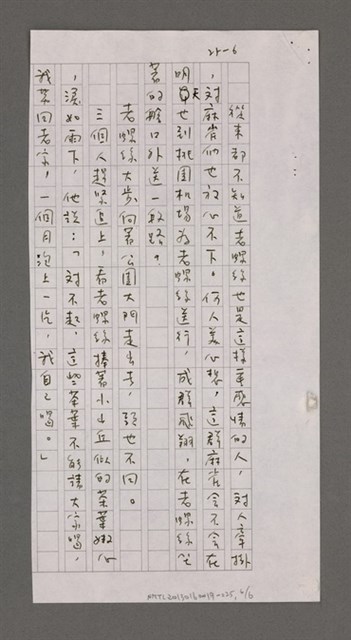 21-6
從來都不知道老螺絲也是這樣重感情的人，對人牽掛
，對麻雀們也放心不下。何人美心想，這群麻雀會不會在
明天也到桃園机場為老螺絲送行，成群飛翔，在老螺絲坐
著的艙口外送一段路？
老螺絲大步向著公園大門走出去，頭也不回。
三個人趕緊追上，看老螺絲捧著小山丘似的茶葉
，淚如雨下，他說：「對不起，這些茶葉不能請大家喝，
我帶回老家，一個月泡上一次，我自己喝。」
NMTL20150160019-225, 6/6